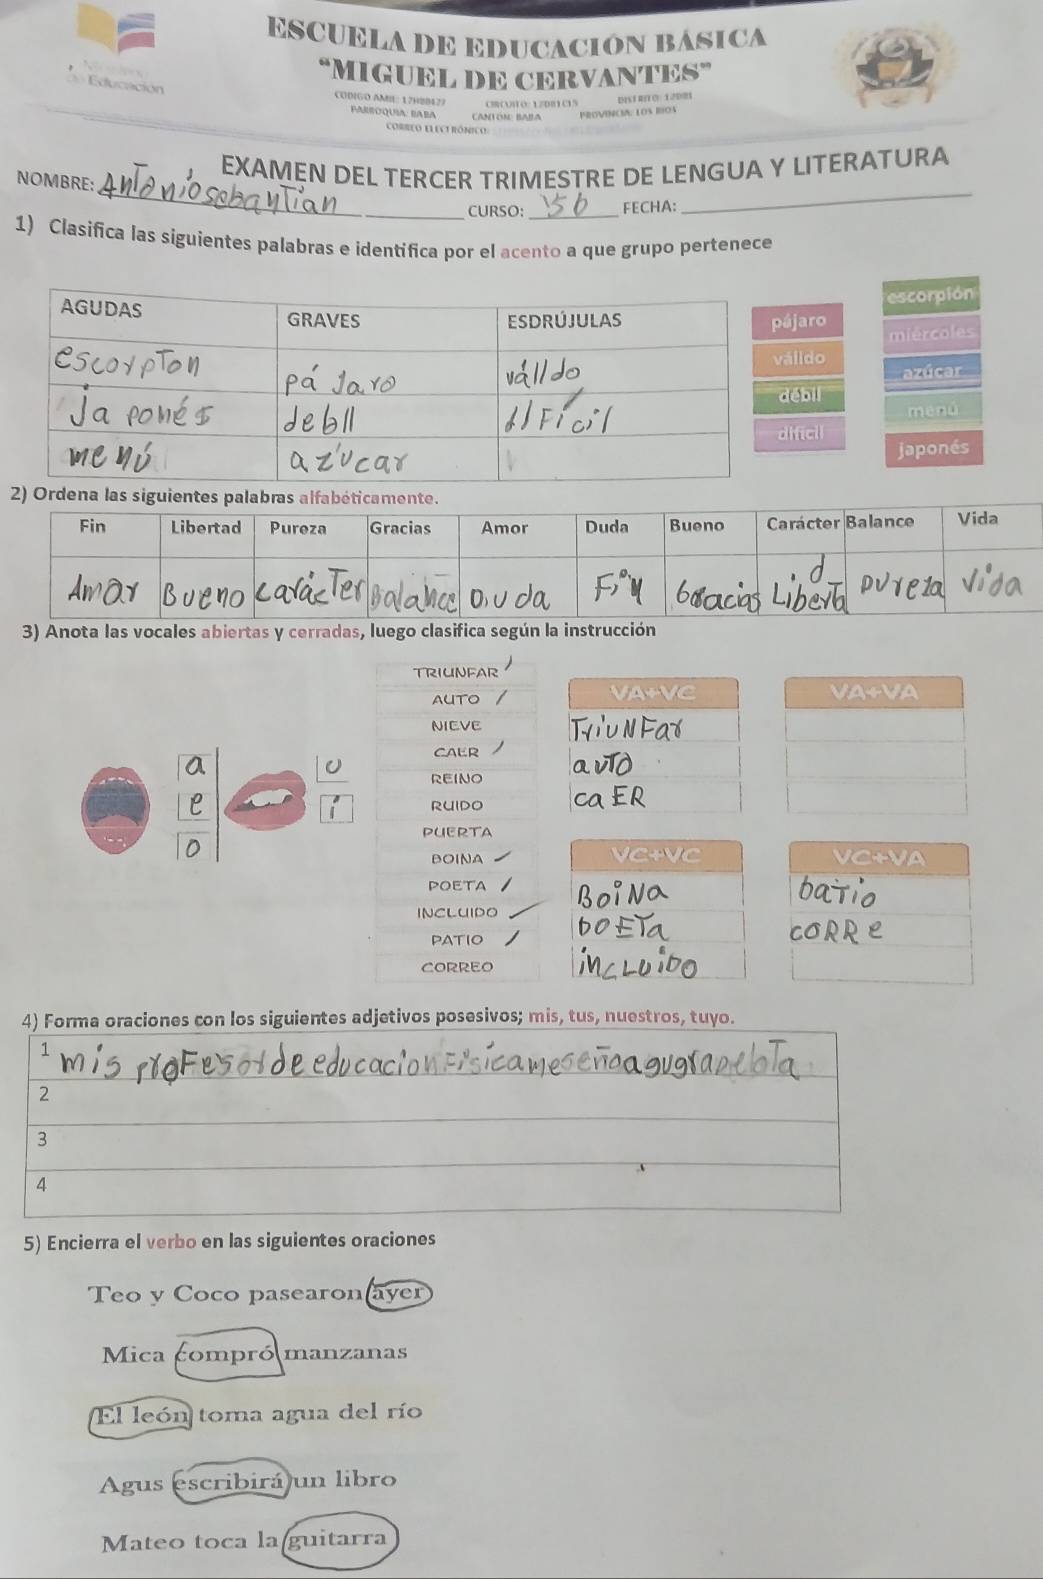 Educación
ESCUELA DE EDUCACIÓN BÁSICA
"MIGUEL DE CERVANTES"
CODIGO AMIE: 12H00427 CIRCUITO: 12D01C15 DISTRITO: 12D01
PARROQUIA: BABA CANTON: BABA PROVINCIA: LOS RIOS
CORREO ELECTRÓNICO:
EXAMEN DEL TERCER TRIMESTRE DE LENGUA Y LITERATURA
NOMBRE: Antonio sebantian CURSO: FECHA:
1) Clasifica las siguientes palabras e identifica por el acento a que grupo pertenece
AGUDAS GRAVES ESDRÚJULAS
escorpTon pá Jaro válldo
Japonés debll dIFícil
menú azúcar
pájaro
válido
débil
difícil
escorpión
miércoles
azúcar
menú
japonés
2) Ordena las siguientes palabras alfabéticamente.
Fin Libertad Pureza Gracias Amor Duda Bueno Carácter Balance Vida
Amar Bueno carácTer Balance Duda Fin Gracias LiberTad pureza vida
3) Anota las vocales abiertas y cerradas, luego clasifica según la instrucción
a
e
o
u
i
TRIUNFAR
AUTO
NIEVE
CAER
REINO
RUIDO
PUERTA
BOINA
POETA
INCLUIDO
PATIO
CORREO
VA+VC
TriUNFar
auTO
caER
VA+VA
VC+VC
BoiNa
poETa
incLuiDO
VC+VA
paTio
coRRe
4) Forma oraciones con los siguientes adjetivos posesivos; mis, tus, nuestros, tuyo.
1 mis proFesor de educacion Fisica me señoa gugra peloTa
2
3
4
5) Encierra el verbo en las siguientes oraciones
Teo y Coco pasearon ayer
Mica compró manzanas
El león toma agua del río
Agus escribirá un libro
Mateo toca la guitarra